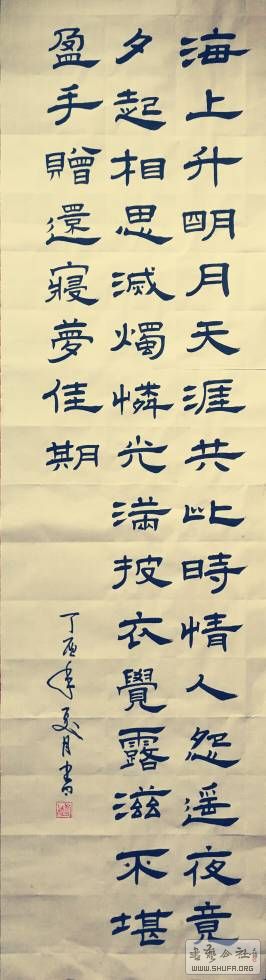 海上升明月天涯共此時情人怨遥夜竟
夕起相思滅燭憐光滿披衣覺露滋不堪
盈手贈還寢夢佳期
丁酉年夏月書
书艺公社
WWW.SHUFA.ORG